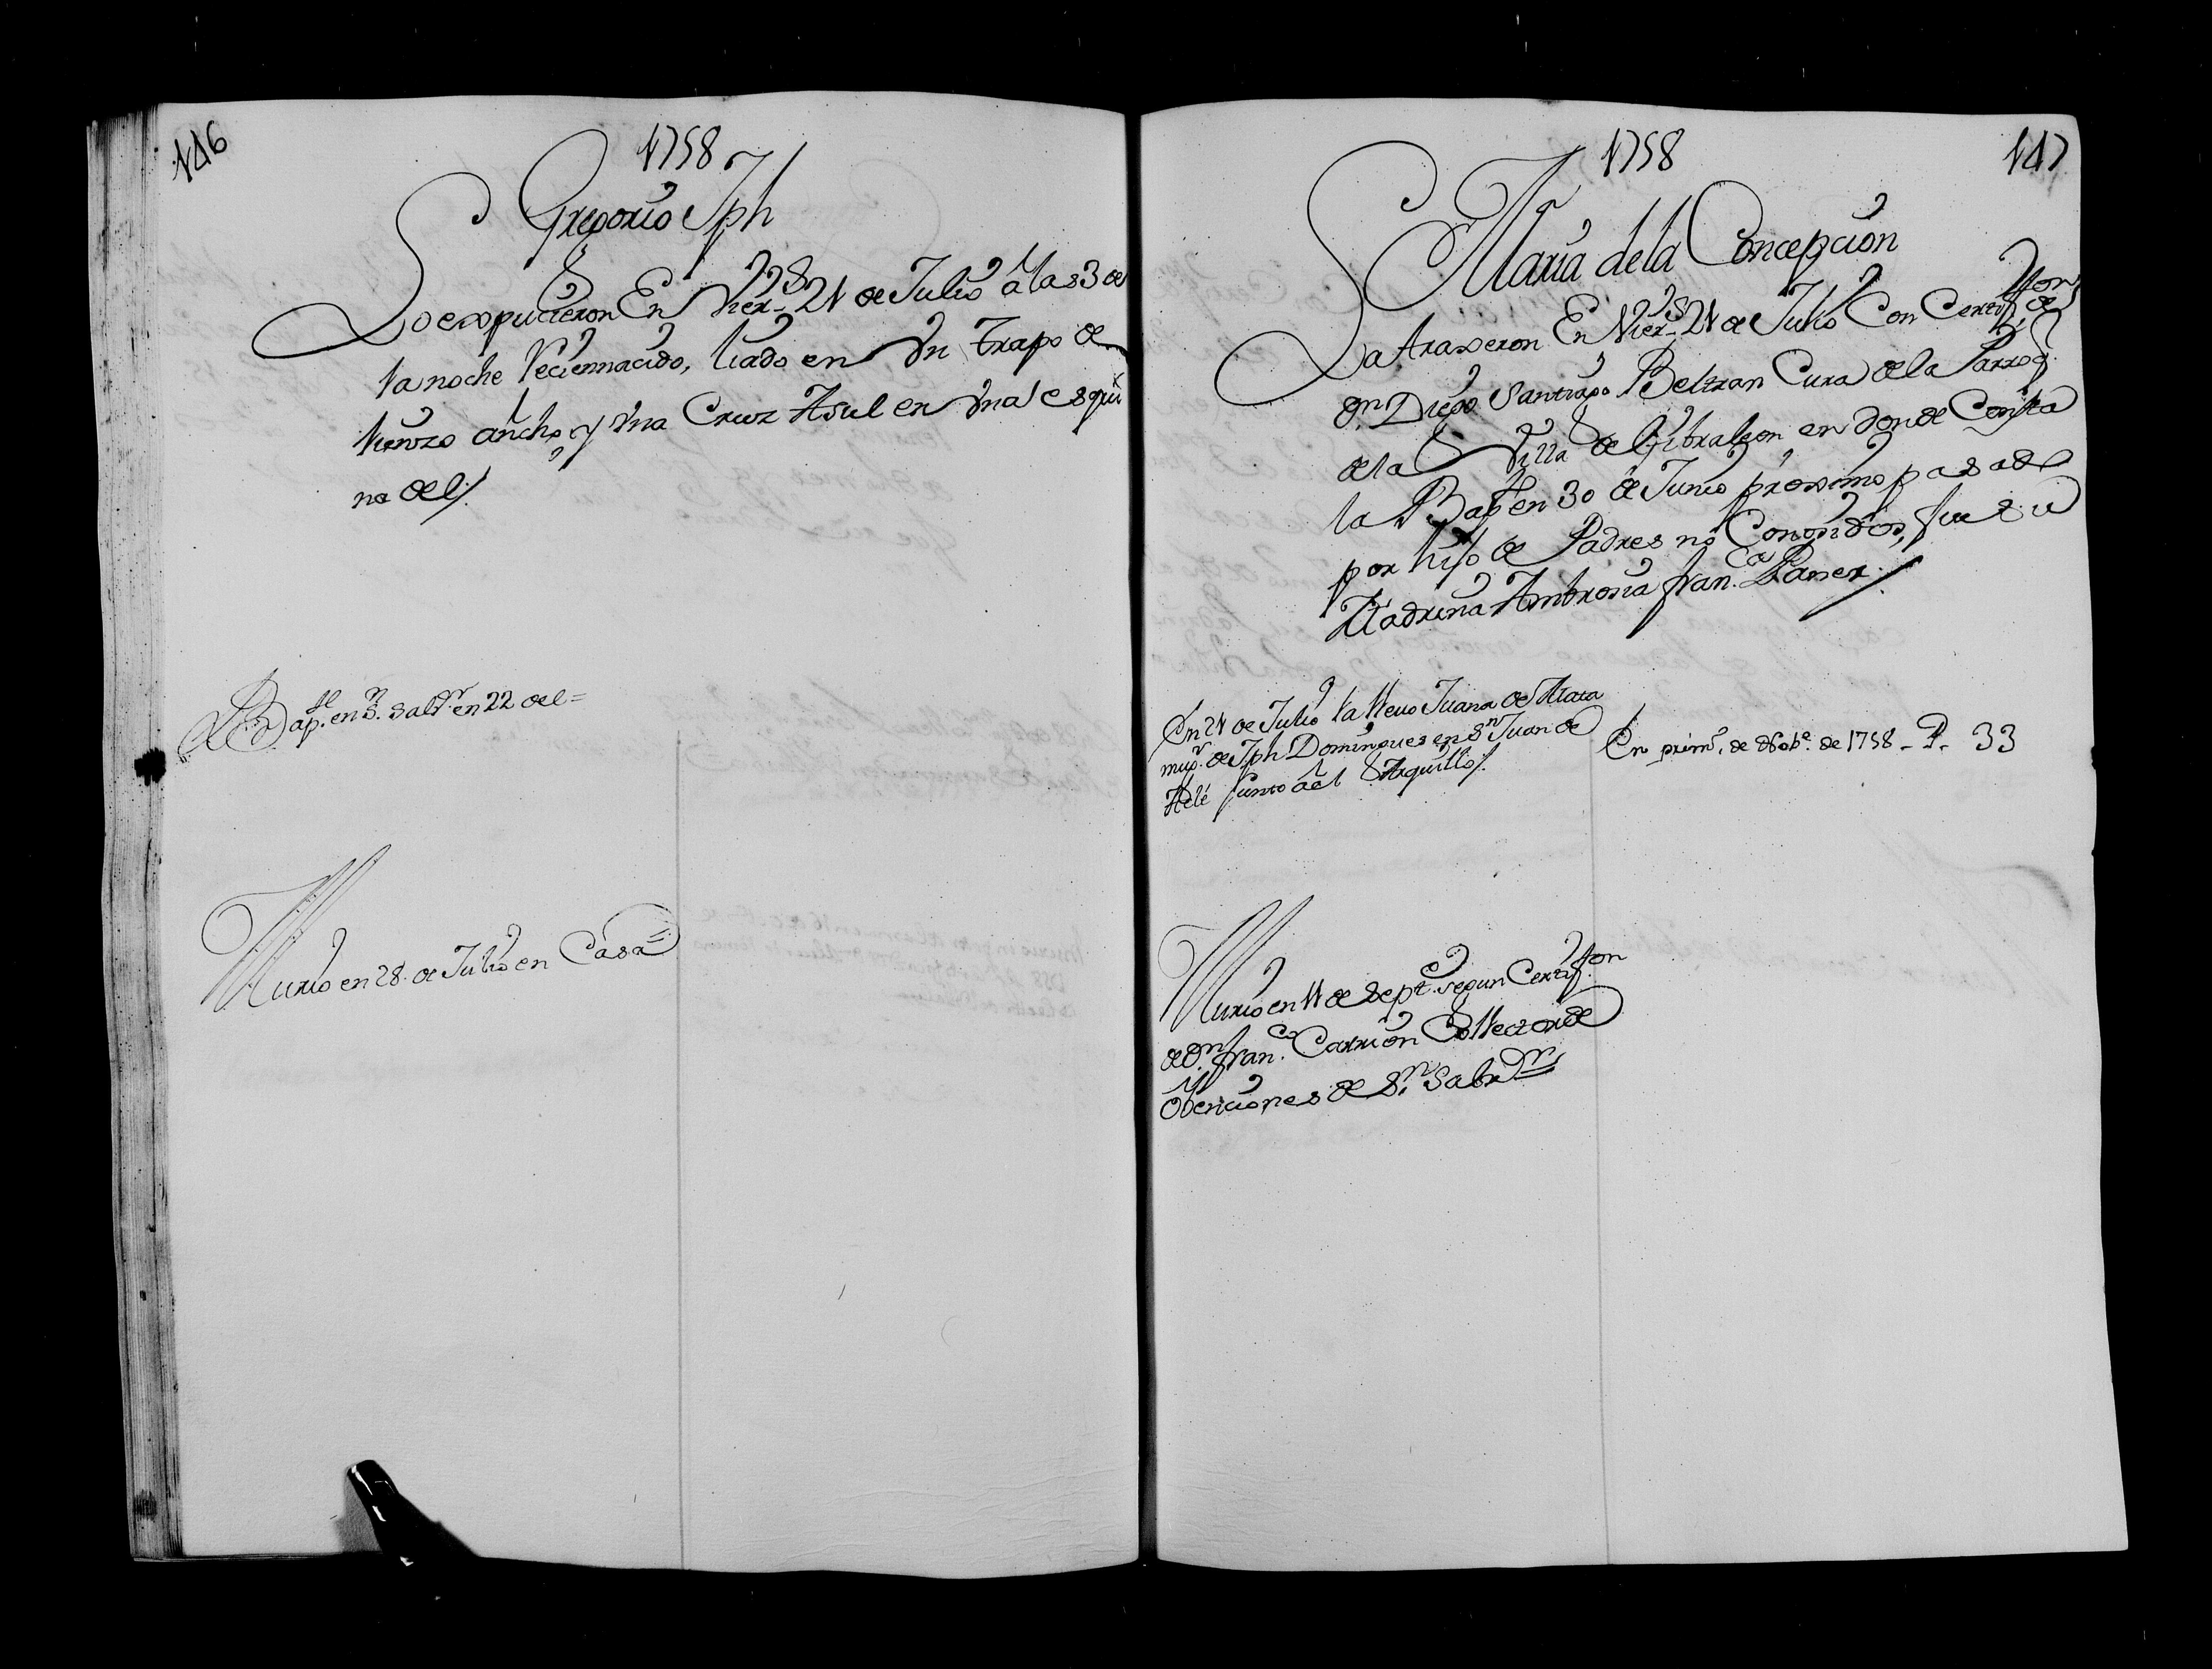 146
1758
Gregorio Jph
Lo expucieron En Vier.s 21 de Julio â las 3 de
la noche Reciennacido, liado en Vn Trapo de
lienzo ancho, y Vna Cruz Asul en Vna esqui
na del/.
Bap.do en S.n Salv.r en 22 del=
Murio en 28. de Julio en Casa=
1758
147
Maria de la Concepcion
La traxeron En Vier.s 21 de Julio Con Certif.on de
D.n Diego Santiago Beltran Cura de la Parroq.
de la Villa de Gibraleon, en donde Consta
la Bap.on en 30 de Junio proximo pasado
por hijo de Padres nô Conosidos, fue su
Madrina Ambrosia fran.ca Paner./
En 21 de Julio la llevo Juana de Mata
mug.r de Jph Domingues en S.n Juan de
Alde junto âel Arquillo/.
En prim.o de Nob.e de 1758 - P. 33
Murio en 11 de Sept.e segun Certif.on
de D.n fran.co Carrion Collector de
Obenciones de S.n Salv.or